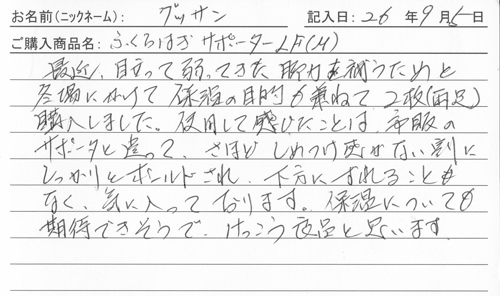 お名前(ニックネーム): グッサン 記入日: 26 年 9 月 5 日
ご購入商品名: ふくらはぎサポーターLF(M)
最近、目立って弱ってきた脚力を補うためと
冬場に向けて保温の目的も兼ねて2枚(両足)
購入しました。使用して感じたことは、市販の
サポータと違って、さほどしめつけ感がない割に
しっかりとホールドされ、下方にずれることも
なく、気に入っております。保温についても
期待できそうで、けっこう良品と思います。